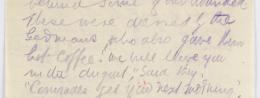 behind some of our wounded
These were dressed by the
Germans who also gave them
hot coffee. "we will leave you
in the dugout" said they,
"Comrades get you next morning"